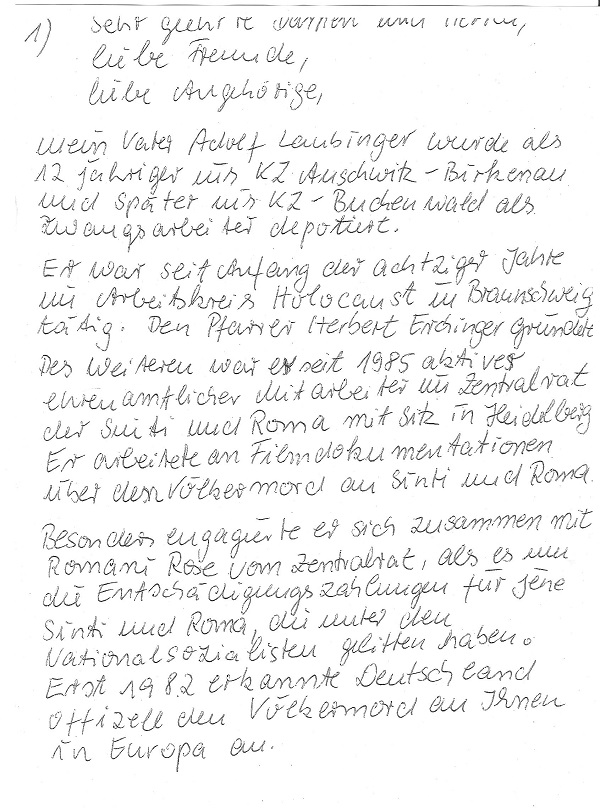 1) Sehr geehrte Damen und Herren,
liebe Freunde,
liebe Angehörige,
mein Vater Adolf Laubinger wurde als
12 jähriger ins KZ Auschwitz-Birkenau
und später ins KZ-Buchenwald als
Zwangsarbeiter depotiert.
Er war seit Anfang der achtziger Jahre
im Arbeitskreis Holocaust in Braunschweig
tätig. Den Pfarrer Herbert Erchinger gründete
Des Weiteren war er seit 1985 aktiver
ehrenamtlicher Mitarbeiter im Zentralrat
der Sinti und Roma mit Sitz in Heidelberg
Er arbeitete an Filmdokumentationen
über den Völkermord an Sinti und Roma.
Besonders engagierte er sich zusammen mit
Romani Rose vom Zentralrat, als es um
die Entschädigungszahlungen für jene
Sinti und Roma, die unter den
Nationalsozialisten gelitten haben.
Erst 1982 erkannte Deutschland
offizell den Völkermord an Ihnen
in Europa an.